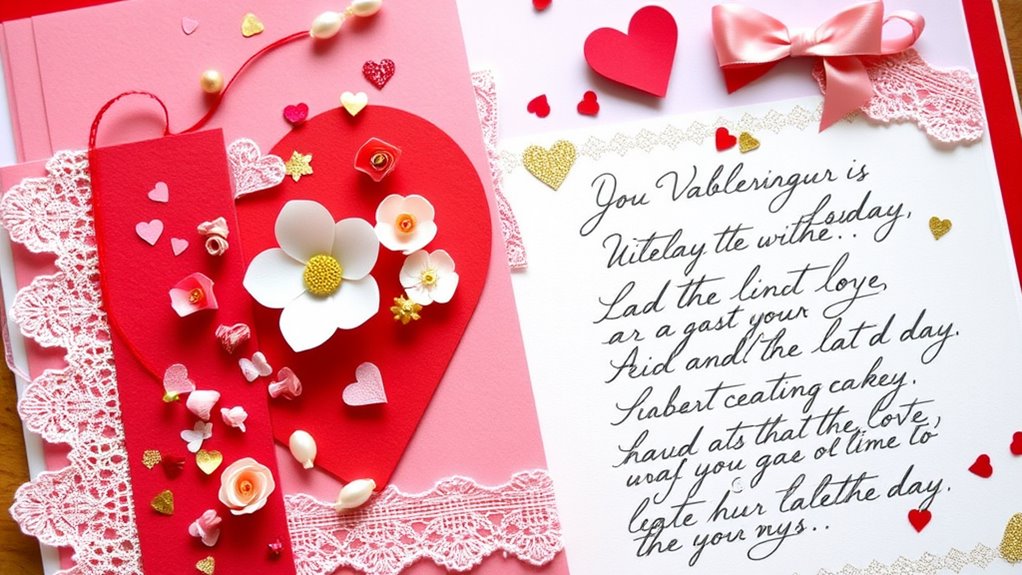 You Vableringur is
Uitelay tte withe.. fosday,
Lad the linct loye,
ar a gast your
Aeid and l the lat d day.
Liabert ceating cakey.
haud ats that the love,
woaf you gae ol lime to
leate hur lalethe day.
the your nys..